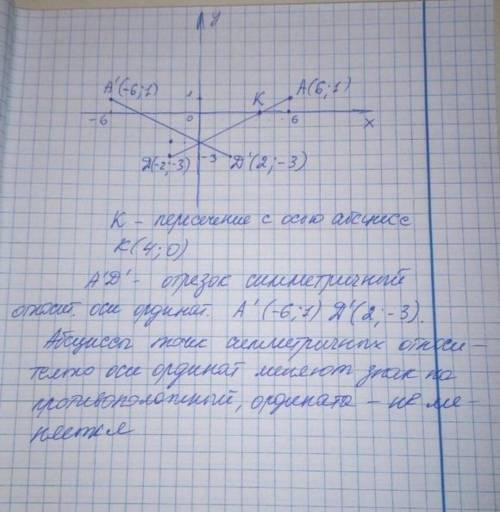 y
A'(-6;1)
A(6;1)
1
K
-6
0
6
x
Д(-2;-3)
-3
D'(2;-3)
K - пересечение с осью абсцисс
K(4;0)
A'D' - отрезок симметричный
относит. оси ординат. A'(-6;1) D'(2;-3).
Абсциссы точек симметричных относи-
тельно оси ординат меняют знак на
противоположный, ордината - не ме-
няется